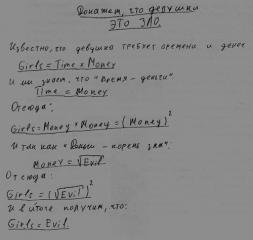 Докажем, что девушки
ЭТО ЗЛО.
Известно, что девушка требует времени и денег
Girls = Time × Money
И мы знаем, что "время - деньги"
Time = Money
Отсюда:
Girls = Money × Money = (Money)²
И так как "Деньги - корень зла":
Money = √Evil
Отсюда:
Girls = (√Evil)²
И в итоге получим, что:
Girls = Evil